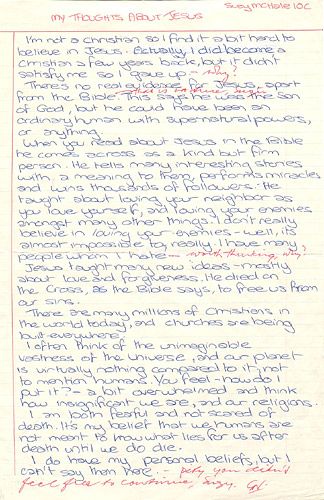 Suzy McHale 10C
MY THOUGHTS ABOUT JESUS
I'm not a christian so I find it a bit hard to
believe in Jesus. Actually, I did become a
Christian a few years back, but it didn't
satisfy me so I gave up - Why?
There's no real evidence for Jesus, apart
from the Bible. This says he was the son
of God, but he could have been an
ordinary human with supernatural powers,
or anything.
When you read about Jesus in the Bible
he comes across as a kind but firm
person. He tells many interesting stories
with a meaning to them, performs miracles
and wins thousands of followers. He
taught about loving your neighbor as
you love yourself, and loving your enemies
amongst many other things. I don't really
believe in loving your enemies - well, its
almost impossible to, really. I have many
people whom I hate - worth thinking, why?
Jesus taught many new ideas - mostly
about love and forgiveness. He died on
the Cross, as the Bible says, to free us from
our sins.
There are many millions of Christians in
the world today, and churches are being
built everywhere.
I often think of the unimaginable
vastness of the Universe, and our planet
is virtually nothing compared to it, not
to mention humans. You feel - how do I
put it? - a bit overwhelmed and think
how insignificant we are, and our religions.
I am both fearful and not scared of
death. It's my belief that we humans are
not meant to know what lies for us after
death until we do die.
I do have my personal beliefs, but I
can't say them here. - pity you didn't
feel free to continue, Suzy.